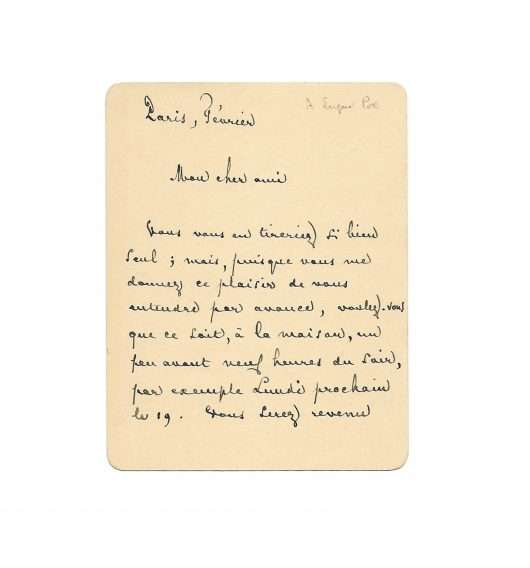 A Eugène
Paris, Février
Mon cher ami
Vous vous en tireriez si bien
seul ; mais, puisque vous me
donnez ce plaisir de vous
entendre par avance, voulez-vous
que ce soit, à la maison, un
peu avant neuf heures du soir,
par exemple Lundi prochain
le 19. Vous serez revenu